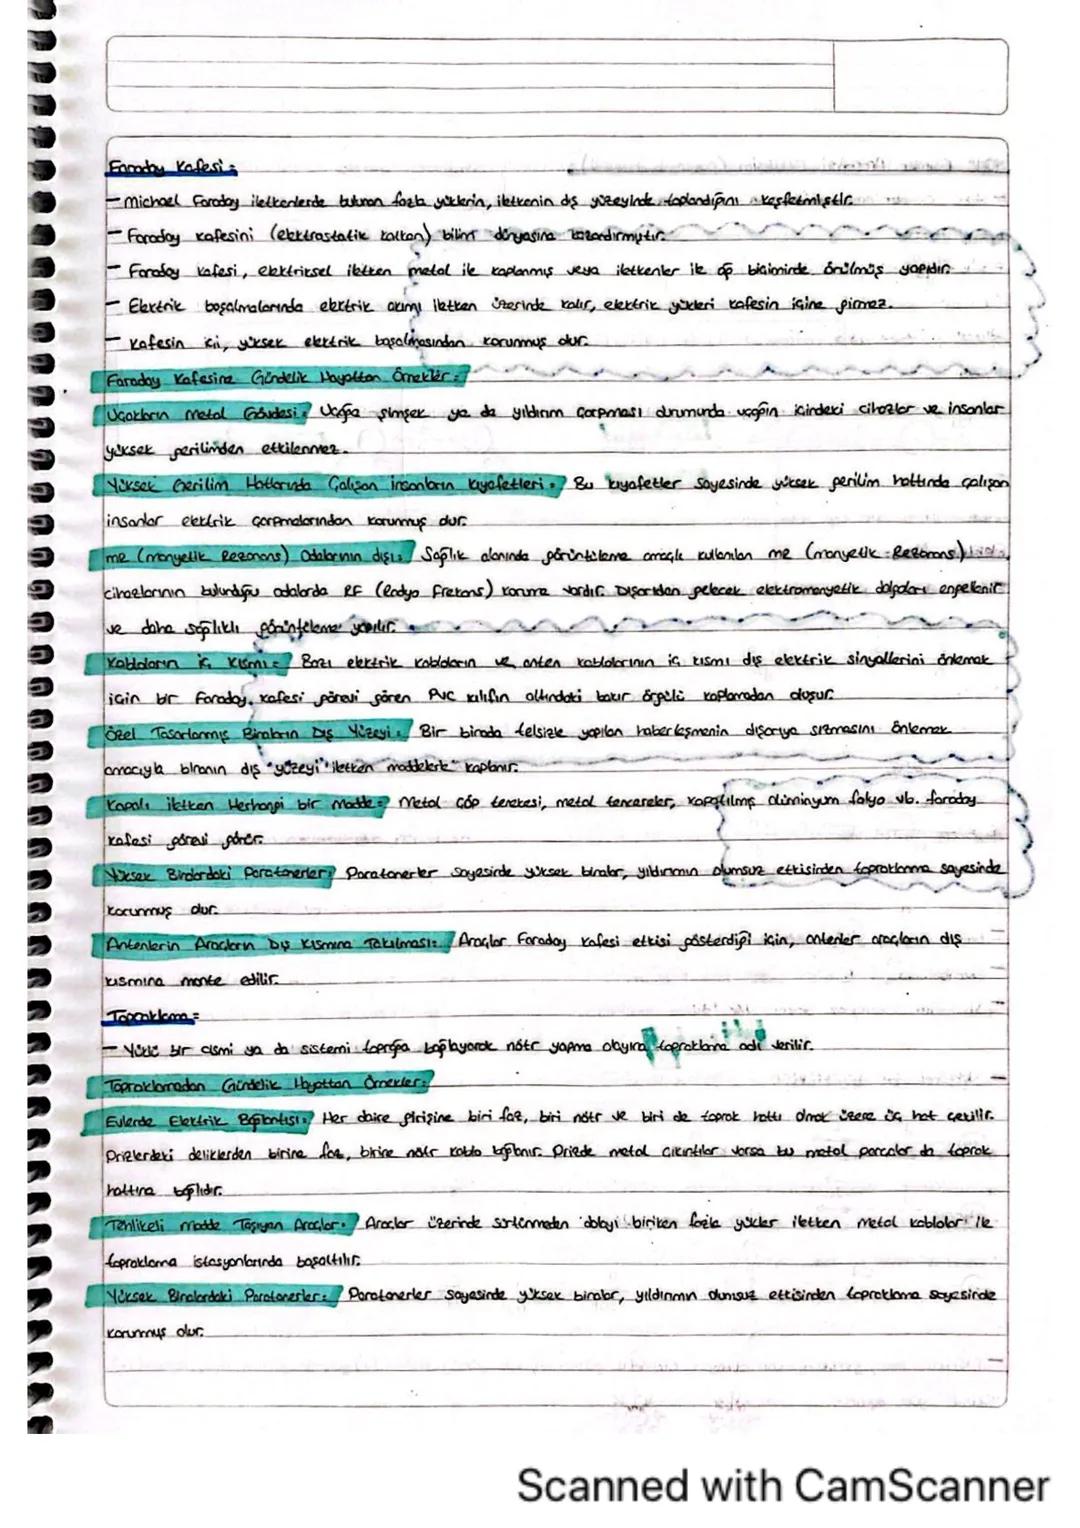 Faraday Kafesi:
- Michael Faraday iletkenlerde bulunan fazla yüklerin, iletkenin dış yüzeyinde toplandığını keşfetmiştir.
- Faraday kafesini (elektrostatik kalkan) bilim dünyasına kazandırmıştır.
- Faraday kafesi, elektriksel iletken metal ile kaplanmış veya iletkenler ile ağ biçiminde örülmüş yapıdır.
- Elektrik boşalmalarında elektrik akımı iletken üzerinde kalır, elektrik yükleri kafesin içine girmez.
- Kafesin içi, yüksek elektrik boşalmasından korunmuş olur.
Faraday Kafesine Gündelik Hayattan Örnekler:
Uçakların Metal Gövdesi: Uçağa şimşek ya da yıldırım çarpması durumunda uçağın içindeki cihazlar ve insanlar
yüksek gerilimden etkilenmez.
Yüksek Gerilim Hatlarında Çalışan İnsanların Kıyafetleri: Bu kıyafetler sayesinde yüksek gerilim hattında çalışan
insanlar elektrik çarpmalarından korunmuş olur.
MR (Manyetik Rezonans) Odalarının dışı: Sağlık alanında görüntüleme amaçlı kullanılan MR (Manyetik Rezonans)
cihazlarının bulunduğu odalarda RF (Radyo Frekans) koruma vardır. Dışarıdan gelecek elektromanyetik dalgaları engellenir
ve daha sağlıklı görüntüleme yapılır.
Kabloların İç Kısmı: Bazı elektrik kabloların ve anten kablolarının iç kısmı dış elektrik sinyallerini önlemek
için bir Faraday kafesi görevi gören PVC kılıfın altındaki bakır örgülü kaplamadan oluşur.
Özel Tasarlanmış Binaların Dış Yüzeyi: Bir binada telsizle yapılan haberleşmenin dışarıya sızmasını önlemek
amacıyla binanın dış yüzeyi iletken maddelerle kaplanır.
Kapalı iletken Herhangi bir Madde: Metal çöp tenekesi, metal tencereler, kapatılmış alüminyum folyo vb. faraday
kafesi görevi görür.
Yüksek Binalardaki Paratonerler: Paratonerler sayesinde yüksek binalar, yıldırımın olumsuz etkisinden topraklama sayesinde
korunmuş olur.
Antenlerin Araçların Dış Kısmına Takılması: Araçlar Faraday kafesi etkisi gösterdiği için, antenler araçların dış
kısmına monte edilir.
Topraklama:
- Yüklü bir cismi ya da sistemi toprağa bağlayarak nötr yapma olayına topraklama adı verilir.
Topraklamadan Gündelik Hayattan Örnekler:
Evlerde Elektrik Bağlantısı: Her daire girişine biri faz, biri nötr ve biri de toprak hattı olmak üzere üç hat çekilir.
Prizlerdeki deliklerden birine faz, birine nötr kablo bağlanır. Prizde metal çıkıntılar varsa bu metal parçalar da toprak
hattına bağlıdır.
Tehlikeli Madde Taşıyan Araçlar: Araçlar üzerinde sürtünmeden dolayı biriken fazla yükler iletken metal kablolar ile
topraklama istasyonlarında boşaltılır.
Yüksek Binalardaki Paratonerler: Paratonerler sayesinde yüksek binalar, yıldırımın olumsuz etkisinden topraklama sayesinde
korunmuş olur.
Scanned with CamScanner